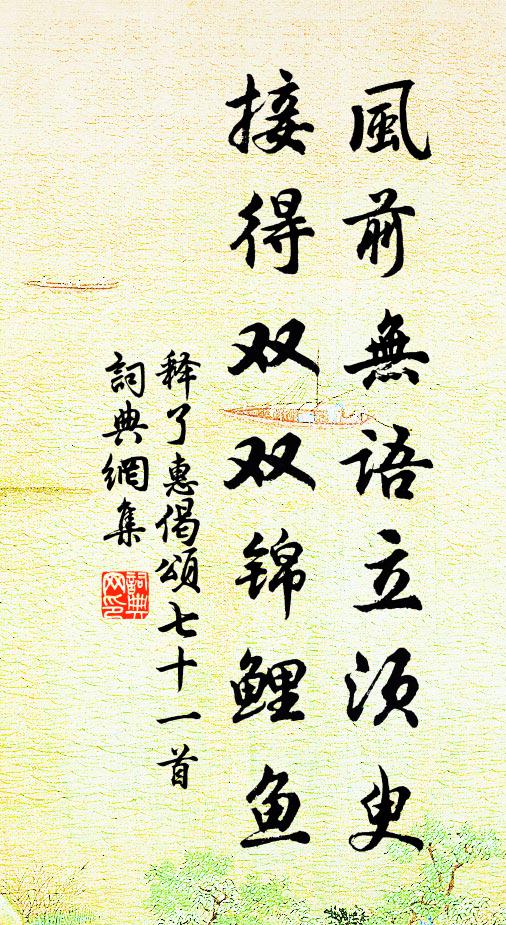 風前無語立須臾
接得双双锦鲤鱼
释了惠偈頌七十一首
詞典網集
詞典
网印